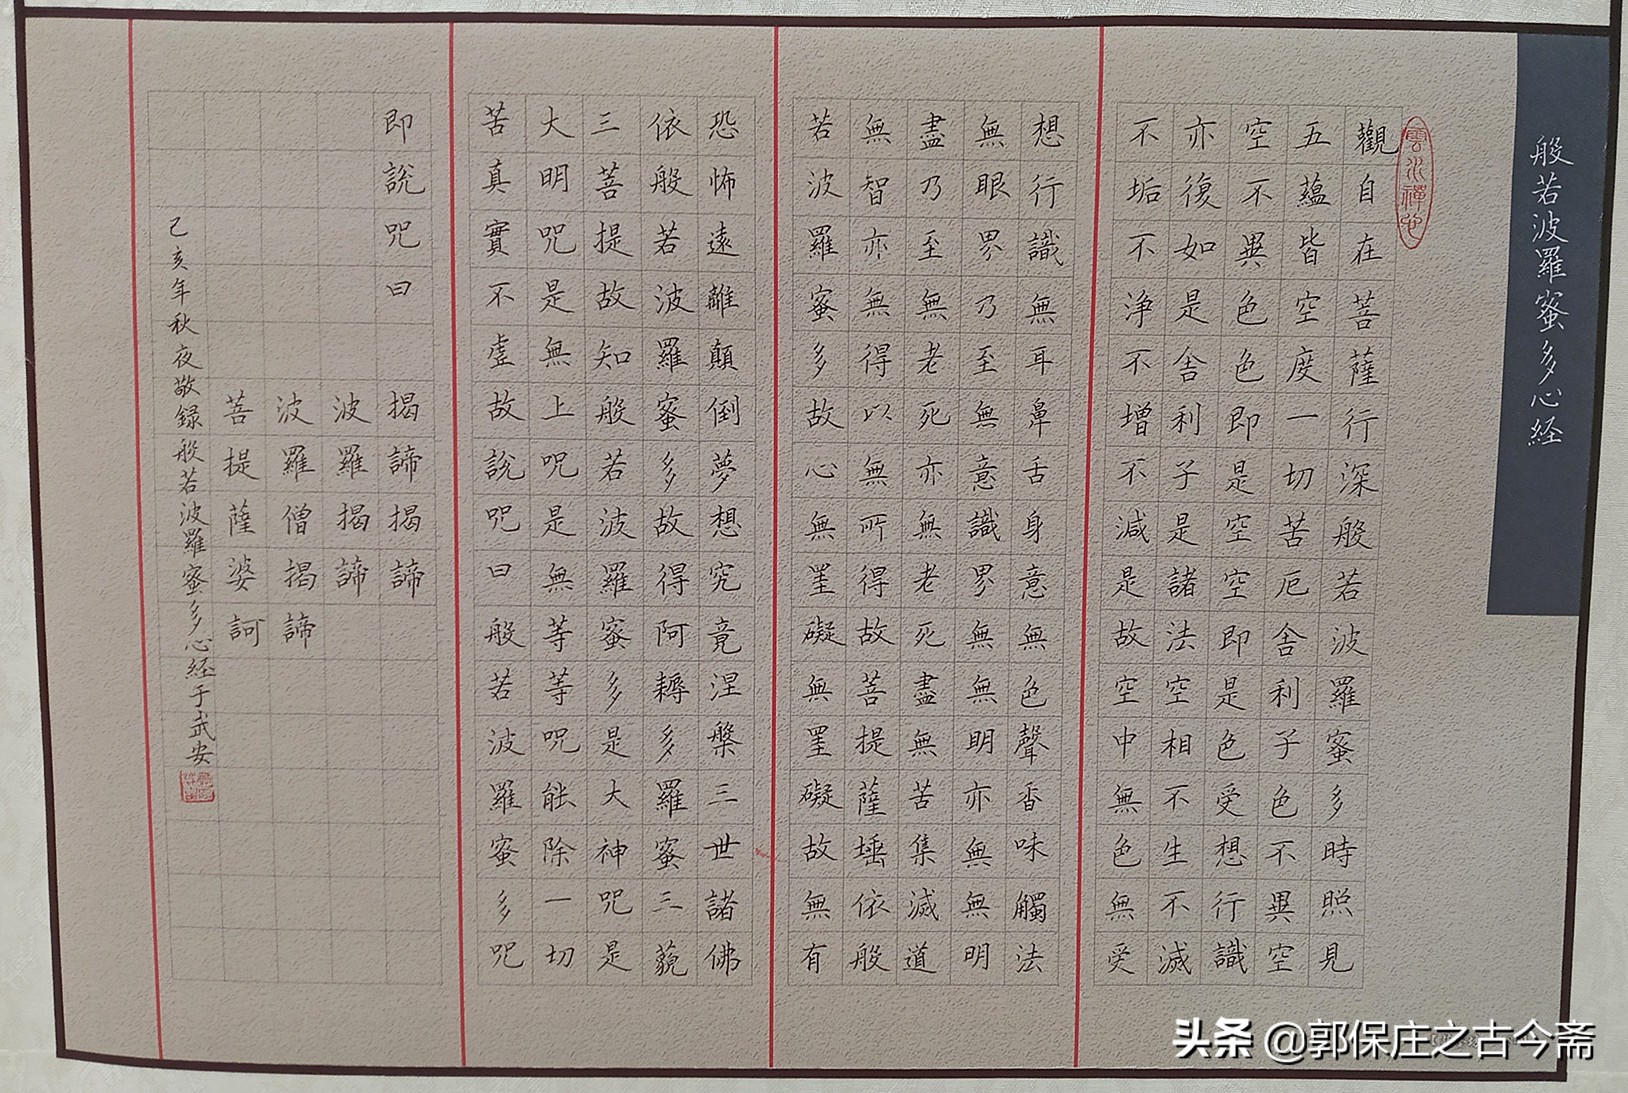 般若波羅蜜多心経
雲水禪心
觀自在菩薩行深般若波羅蜜多時照見
五蘊皆空度一切苦厄舍利子色不異空
空不異色色即是空空即是色受想行識
亦復如是舍利子是諸法空相不生不滅
不垢不浄不增不減是故空中無色無受
想行識無耳鼻舌身意無色聲香味觸法
無眼界乃至無意識界無無明亦無無明
盡乃至無老死亦無老死盡無苦集滅道
無智亦無得以無所得故菩提薩埵依般
若波羅蜜多故心無罣礙無罣礙故無有
恐怖遠離顛倒夢想究竟涅槃三世諸佛
依般若波羅蜜多故得阿耨多羅蜜三藐
三菩提故知般若波羅蜜多是大神咒是
大明咒是無上咒是無等等咒能除一切
苦真實不虛故說咒曰般若波羅蜜多咒
即說咒曰 揭諦揭諦
波羅揭諦
波羅僧揭諦
菩提薩婆訶
己亥年秋夜敬録般若波羅蜜多心経于武安
头条 @郭保庄之古今斋